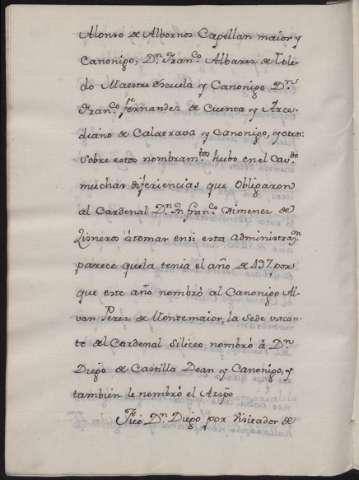 Alonso de Albornos Capellan maior y
Canonigo; Dn. Franco. Albares de Tole-
do Maestre escuela y Canonigo Dn.
Franco. frz. fernandez de Cuenca y Arce-
diano de Calatrava y Canonigo, y otros:
sobre estos nombramtos. hubo en el Cavdo.
muchas diferiencias que obligaron
al Cardenal Dn. fr. franco. Ximenez de
Zisneros átomar ensi esta administran.
parece que la tenia el año de 497 por
que este año nombró al Canonigo Al-
var Perez de Montemaior, la Sede vacan-
te del Cardenal Siliceo, nombró á Dn.
Diego de Castilla Dean y Canonigo, y
tambien le nombró el Arzpo
Fué Dn. Diego por Visitador de